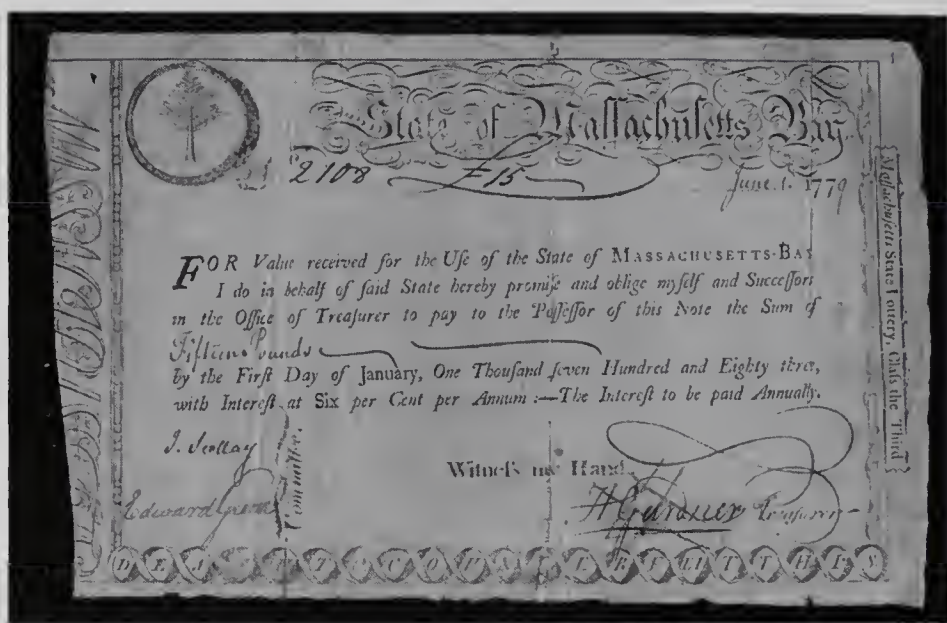 State of Maſſachuſetts Bay
2108 £15 June. 1. 1779
FOR Value received for the Uſe of the State of MASSACHUSETTS-BAY
I do in behalf of ſaid State hereby promiſe and oblige myſelf and Succeſſors
in the Office of Treaſurer to pay to the Poſſeſſor of this Note the Sum of
Fifteen Pounds
by the Firſt Day of January, One Thouſand ſeven Hundred and Eighty three,
with Intereſt at Six per Cent per Annum :—The Intereſt to be paid Annually.
J. Scollay
Edward Green
Committee.
Witneſs my Hand
H Gardner Treaſurer
Maſſachuſetts State Lottery, Claſs the Third